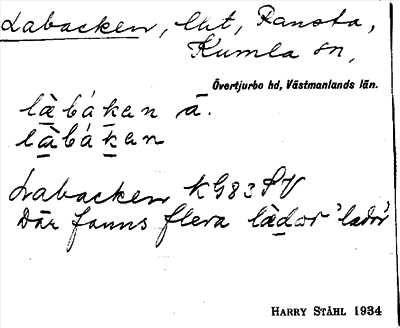 Labacken, lht, Ransta,
Kumla sn,
Övertjurbo hd, Västmanlands län.
là̱bák̲en ā.
là̱bák̲en
Labacken KG83SV
Där fanns flera làd̲ar 'lador'
HARRY STÅHL 1934